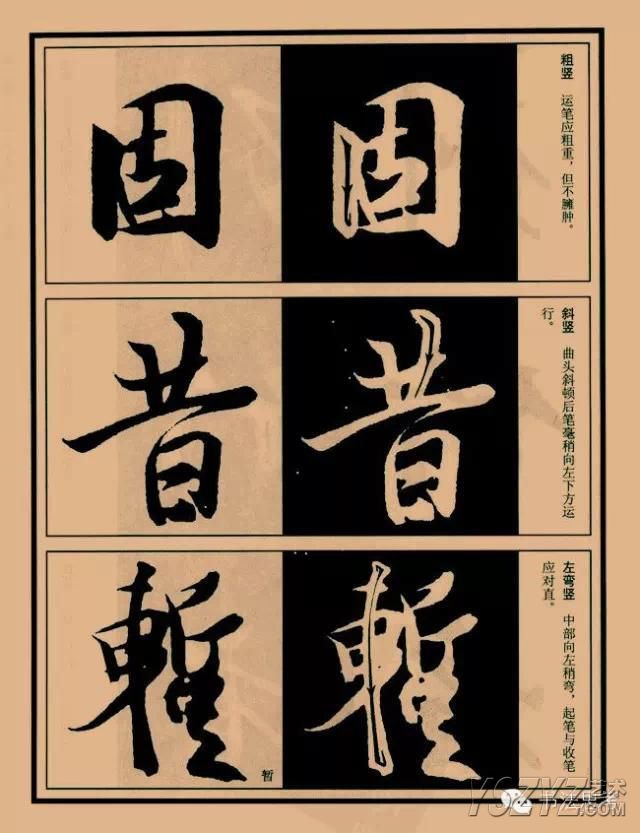 固
固
粗竖 运笔应粗重，但不臃肿。
昔
昔
斜竖 曲头斜顿后笔毫稍向左下方运
行。
暂
左弯竖 中部向左稍弯，起笔与收笔
应对直。
YSZYZ艺术
书法思考